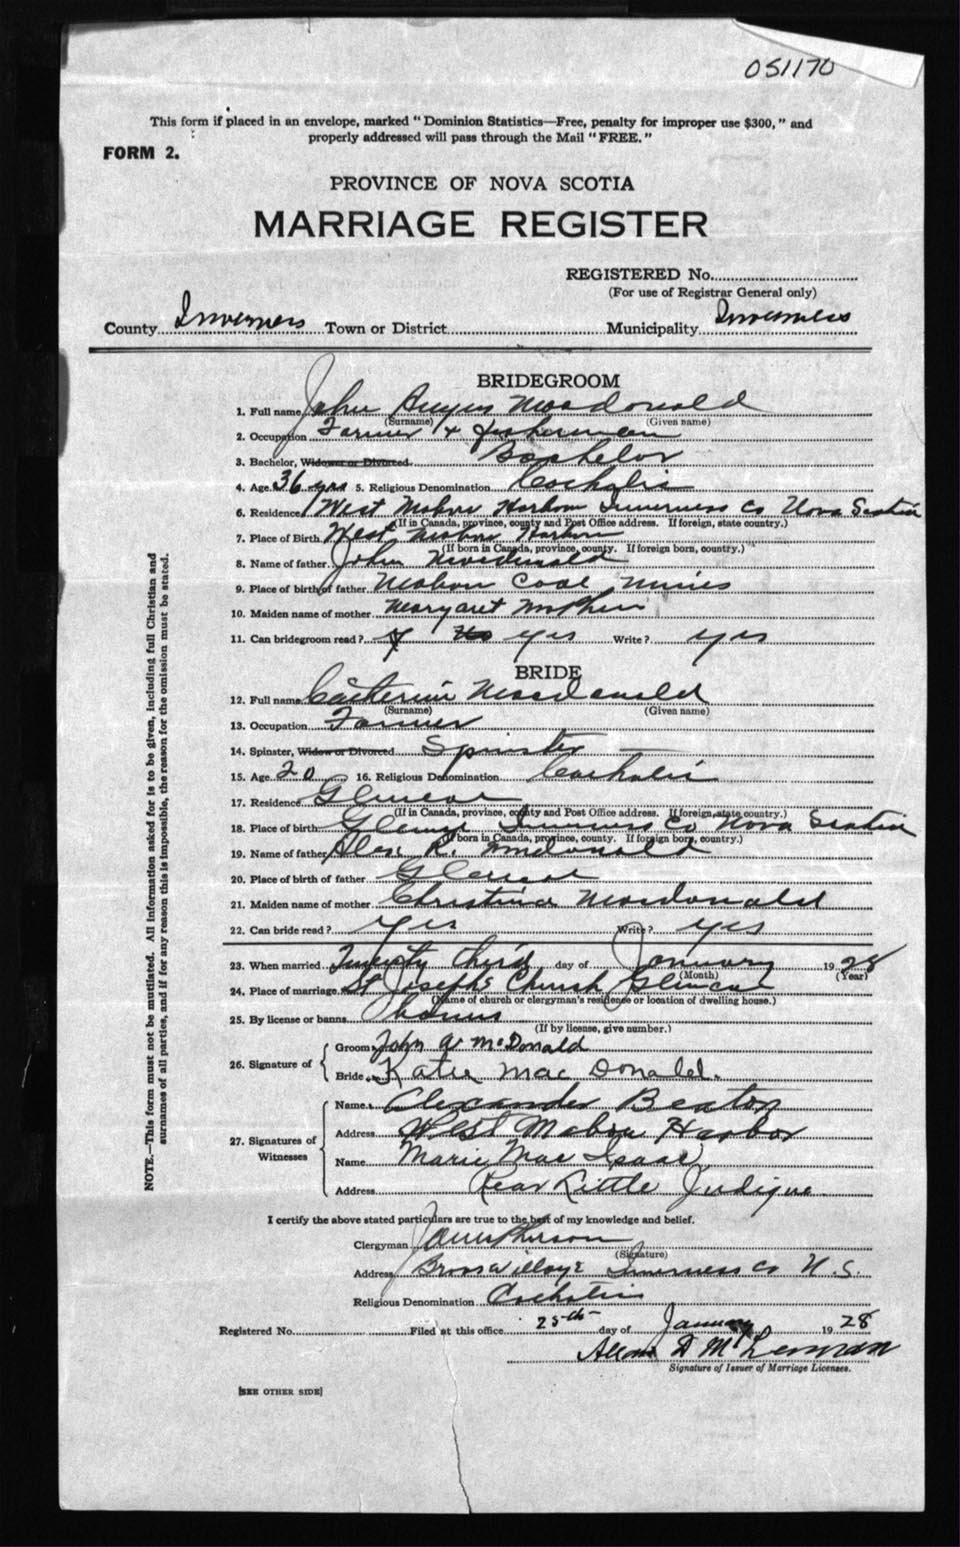 051170
This form if placed in an envelope, marked "Dominion Statistics—Free, penalty for improper use $300," and
properly addressed will pass through the Mail "FREE."
FORM 2.
PROVINCE OF NOVA SCOTIA
MARRIAGE REGISTER
REGISTERED No.
(For use of Registrar General only)
County Inverness Town or District Municipality Inverness
BRIDEGROOM
1. Full name John Angus Macdonald
(Surname) (Given name)
2. Occupation Farmer & fisherman
3. Bachelor, Widower or Divorced. Bachelor
4. Age 36 yrs 5. Religious Denomination Catholic
6. Residence West Mabou Harbour Inverness Co Nova Scotia
(If in Canada, province, county and Post Office address. If foreign, state country.)
7. Place of Birth West Mabou Harbour
(If born in Canada, province, county. If foreign born, country.)
8. Name of father John Macdonald
9. Place of birth of father Mabou Coal Mines
10. Maiden name of mother Margaret
11. Can bridegroom read? yes Write? yes
BRIDE
12. Full name Catherine Macdonald
(Surname) (Given name)
13. Occupation Farmer
14. Spinster, Widow or Divorced Spinster
15. Age 20 16. Religious Denomination Catholic
17. Residence Glencoe
(If in Canada, province, county and Post Office address. If foreign, state country.)
18. Place of birth Glencoe Inverness Co Nova Scotia
(If born in Canada, province, county. If foreign born, country.)
19. Name of father Alex R. Mcdonald
20. Place of birth of father Glencoe
21. Maiden name of mother Christina Macdonald
22. Can bride read? Yes Write? yes
23. When married Twenty third day of January 1928
(Month) (Year)
24. Place of marriage St Joseph's Church Glencoe
(Name of church or clergyman's residence or location of dwelling house.)
25. By license or banns Banns
(If by license, give number.)
26. Signature of
Groom John A McDonald
Bride Katie Mac Donald.
27. Signatures of Witnesses
Name Alexander Beaton
Address West Mabou Harbor
Name Marie Mac Isaac
Address Rear Little Judique
I certify the above stated particulars are true to the best of my knowledge and belief.
Clergyman
(Signature)
Address Brook Village Inverness Co N.S.
Religious Denomination Catholic
Registered No. Filed at this office 25th day of January 1928
D
Signature of Issuer of Marriage Licenses.
[SEE OTHER SIDE]
NOTE.—This form must not be mutilated. All information asked for is to be given, including full Christian and
surnames of all parties, and if for any reason this is impossible, the reason for the omission must be stated.